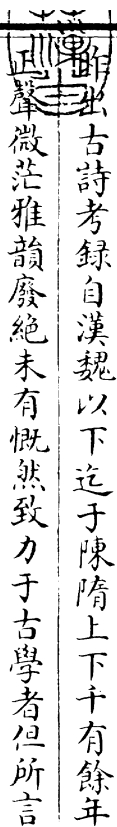 昨出古詩考録自漢魏以下迄于陳隋上下千有餘年
正聲微茫雅韻廢絶未有慨然致力于古學者但所言